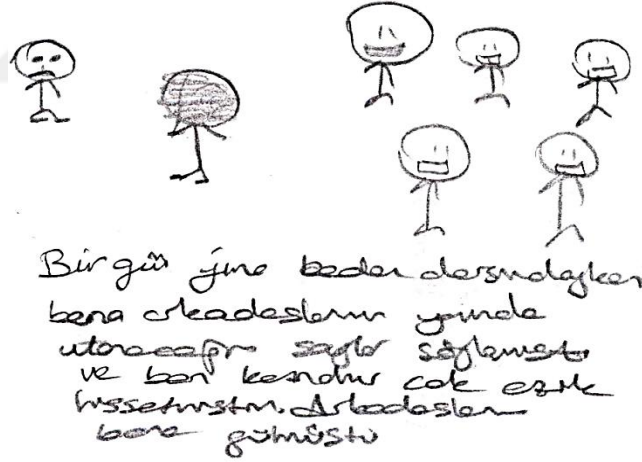 Bir gün yine beden dersindeyken
bana arkadaşlarımın yanında
utanacağım şeyler söylemişti
ve ben kendimi çok ezik
hissetmiştim. Arkadaşlarım
bana gülmüştü